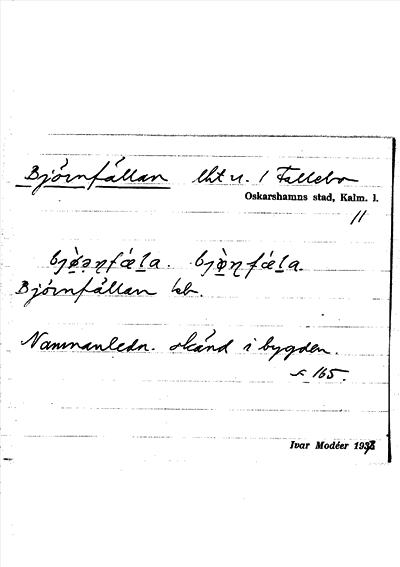 Björnfällan lht u. / Fallebo
Oskarshamns stad, Kalm. l.
11
bjø̀əɳfæ̀l̠a. bjø̀ɳfæ̀l̠a.
Björnfällan kb.
Namnanledn. okänd i bygden.
s. 165.
Ivar Modéer 193